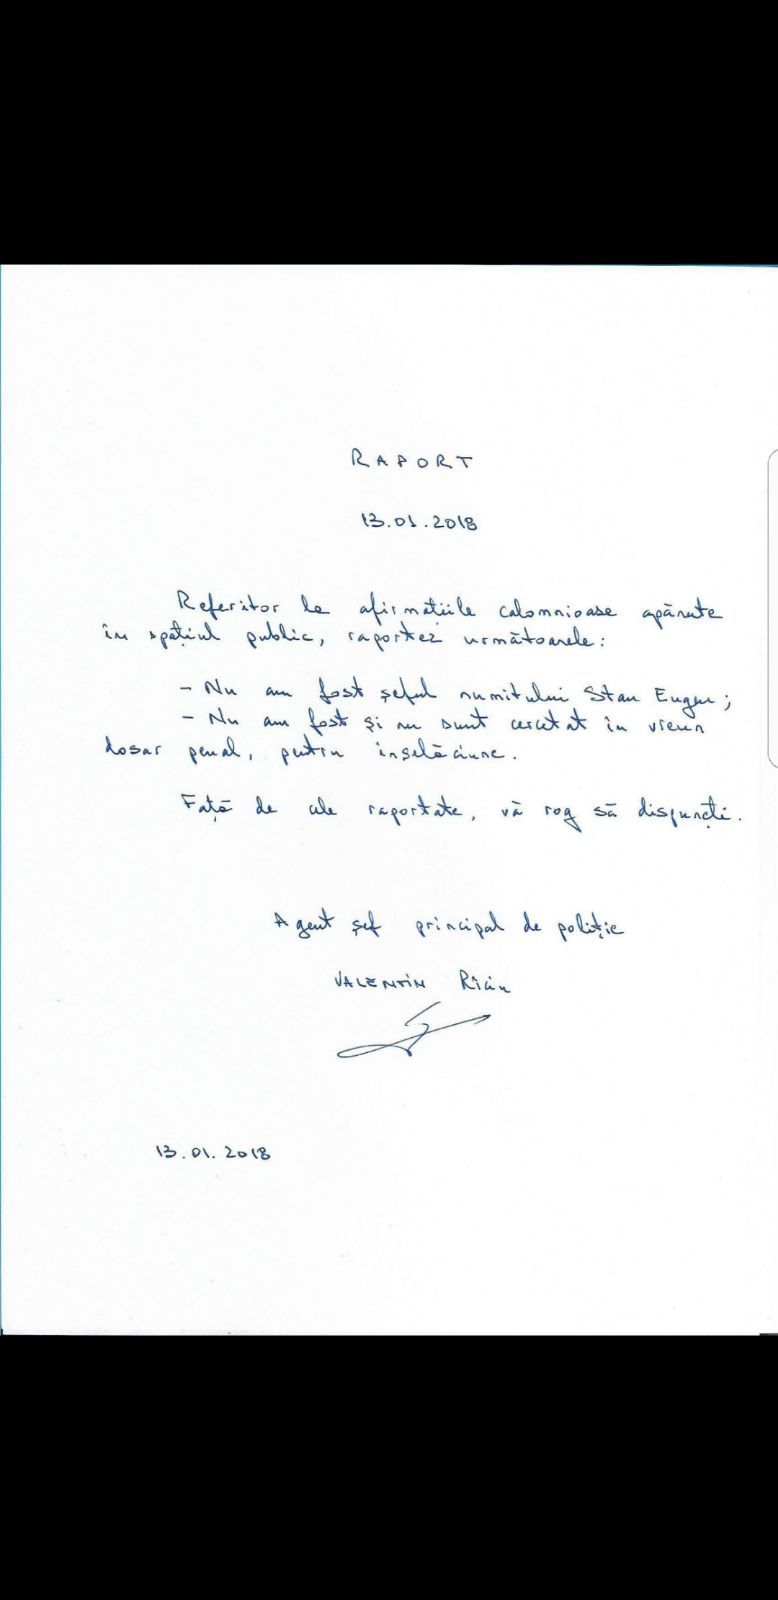 RAPORT
13.01.2018
Referitor la afirmațiile calomnioase apărute
în spațiul public, raportez următoarele:
- Nu am fost șeful numitului Stan Eugen;
- Nu am fost și nu sunt cercetat în vreun
dosar penal, pentru înșelăciune.
Față de cele raportate, vă rog să dispuneți.
Agent șef principal de poliție
VALENTIN
13.01.2018